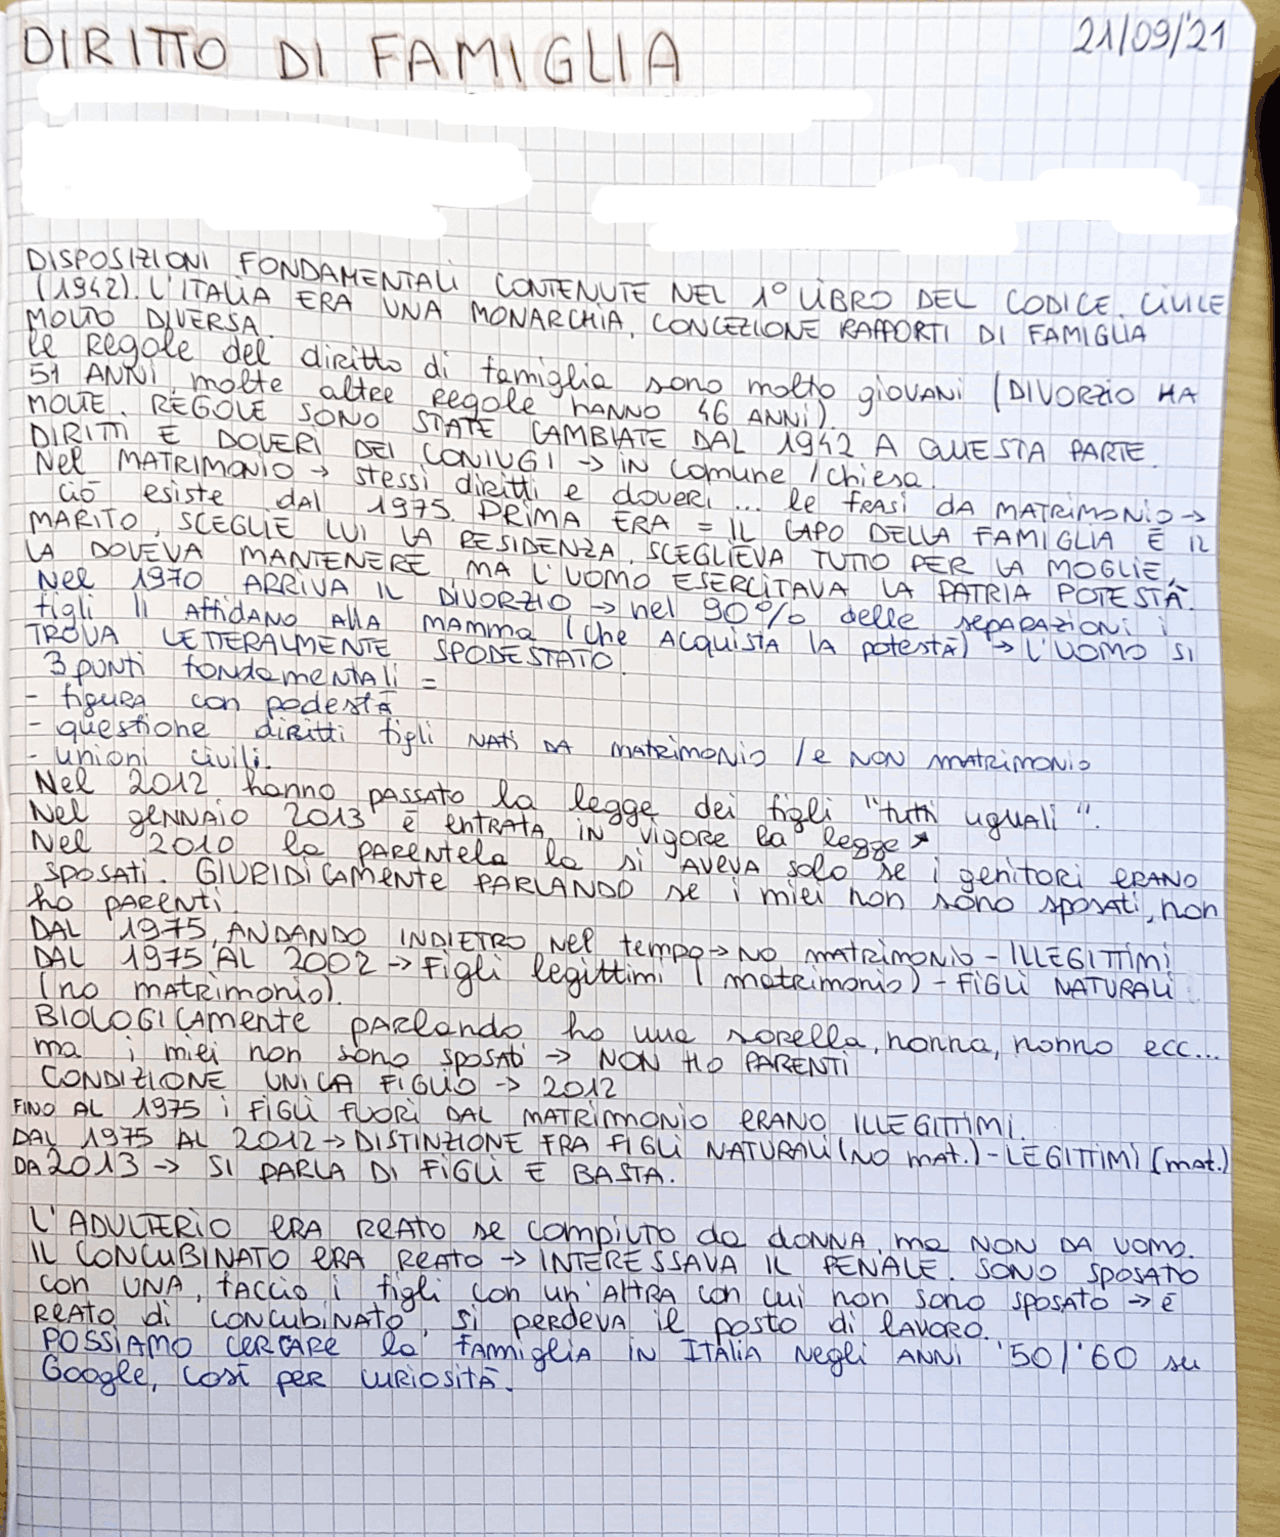 DIRITTO DI FAMIGLIA
21/09/'21
DISPOSIZIONI FONDAMENTALI CONTENUTE NEL 1° LIBRO DEL CODICE CIVILE
(1942). L'ITALIA ERA UNA MONARCHIA, CONCEZIONE RAPPORTI DI FAMIGLIA
MOLTO DIVERSA.
Le Regole del diritto di famiglia sono molto giovani (DIVORZIO HA
51 ANNI, molte altre Regole hANNO 46 ANNI).
MOLTE REGOLE SONO STATE CAMBIATE DAL 1942 A QUESTA PARTE.
DIRITTI E DOVERI DEI CONIUGI → in comune / chiesa.
Nel MATRIMONIO → stessi diritti e doveri... le frasi da MATRIMONIO →
ciò esiste dal 1975. PRIMA ERA = IL CAPO DELLA FAMIGLIA È IL
MARITO, SCEGLIE LUI LA RESIDENZA, SCEGLIEVA TUTTO PER LA MOGLIE,
LA DOVEVA MANTENERE MA L'UOMO ESERCITAVA LA PATRIA POTESTÀ.
Nel 1970 ARRIVA IL DIVORZIO → nel 90% delle separazioni i
figli li Affidano alla mamma (che Acquista la potestà) → L'UOMO SI
TROVA LETTERALMENTE SPODESTATO.
3 punti fondamentali =
- figura con podestà
- questione diritti figli NATI DA matrimonio /e NON matrimonio
- unioni civili.
Nel 2012 hanno passato la legge dei figli "tutti uguali".
Nel gennaio 2013 è entrata in vigore la legge ↗
Nel 2010 la parentela la si aveva solo se i genitori erano
sposati. GIURIDICAMENTE PARLANDO se i miei non sono sposati, non
ho parenti.
DAL 1975, ANDANDO INDIETRO nel tempo → NO matrimonio - ILLEGITTIMI
DAL 1975 AL 2002 → Figli legittimi (matrimonio) - FIGLI NATURALI
(no matrimonio).
BIOLOGICAmente parlando ho una sorella, nonna, nonno ecc...
ma i miei non sono sposati → NON HO PARENTI
CONDIZIONE UNICA FIGLIO → 2012
FINO AL 1975 i FIGLI FUORI DAL MATRIMONIO ERANO ILLEGITTIMI.
DAL 1975 AL 2012 → DISTINZIONE FRA FIGLI NATURALI (NO mat.) - LEGITTIMI (mat.)
DA 2013 → SI PARLA DI FIGLI E BASTA.
L'ADULTERIO ERA REATO se compiuto da donna, ma NON DA UOMO.
IL CONCUBINATO ERA REATO → INTERESSAVA IL PENALE. SONO SPOSATO
con UNA, faccio i figli con un'altra con cui non sono sposato → è
REATO di CONCUBINATO, si perdeva il posto di lavoro.
POSSIAMO CERCARE la famiglia in Italia negli ANNI '50/'60 su
Google, così per curiosità.